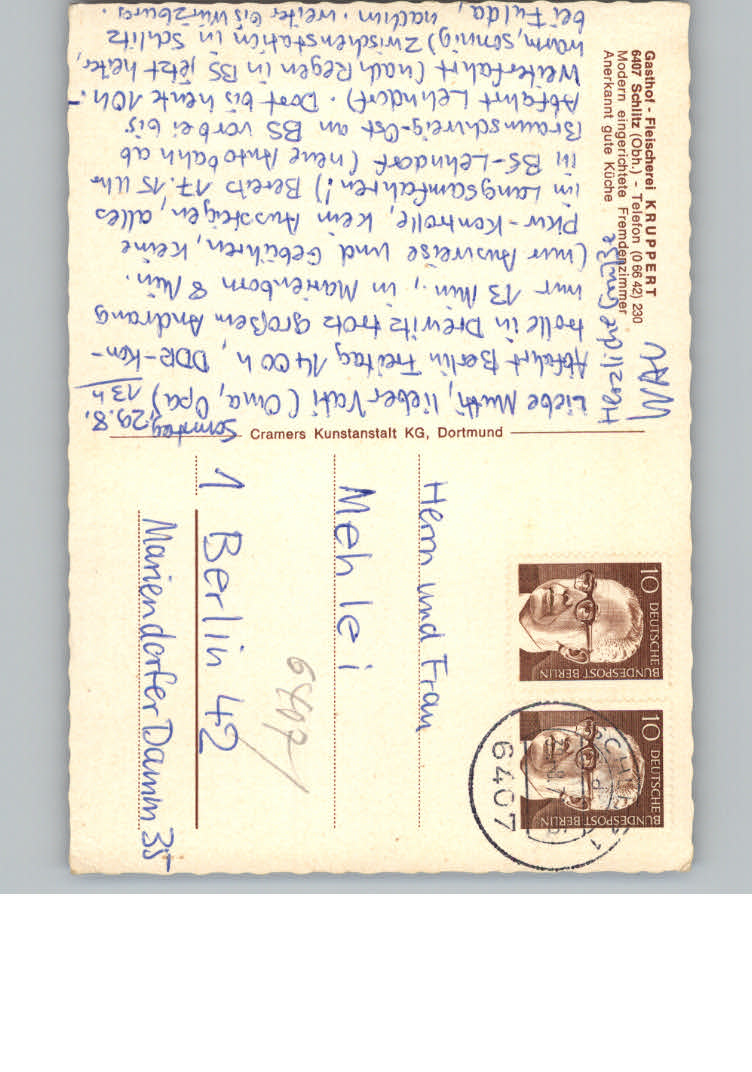 Gasthof - Fleischerei KRUPPERT
6407 Schlitz (Obh.) - Telefon (0 66 42) 230
Modern eingerichtete Fremdenzimmer
Anerkannt gute Küche
Sonntag, 29.8.
13 h
Liebe Mutti, lieber Vati (Oma, Opa)
Abfahrt Berlin Freitag 14.00 h, DDR-Kon-
trolle in Drewitz trotz großem Andrang
nur 13 Min., in Marienborn 8 Min.
(nur Ausweise und Gebühren, keine
Pkw-Kontrolle, kein Aussteigen, alles
im Langsamfahren!) Bereits 17.15 Uhr
in BS-Lehndorf (neue Autobahn ab
Braunschweig-Ost an BS vorbei bis
Abfahrt Lehndorf). Dort bis heute 10 h.-
Weiterfahrt (nach Regen in BS jetzt heiter,
warm, sonnig) Zwischenstation in Schlitz
bei Fulda, nachm. weiter bis Würzburg.
Herzliche Grüße
Cramers Kunstanstalt KG, Dortmund
10 DEUTSCHE
BUNDESPOST BERLIN
10 DEUTSCHE
BUNDESPOST BERLIN
6407
Herrn und Frau
Mehlei
1 Berlin 42
Mariendorfer Damm 35
6407